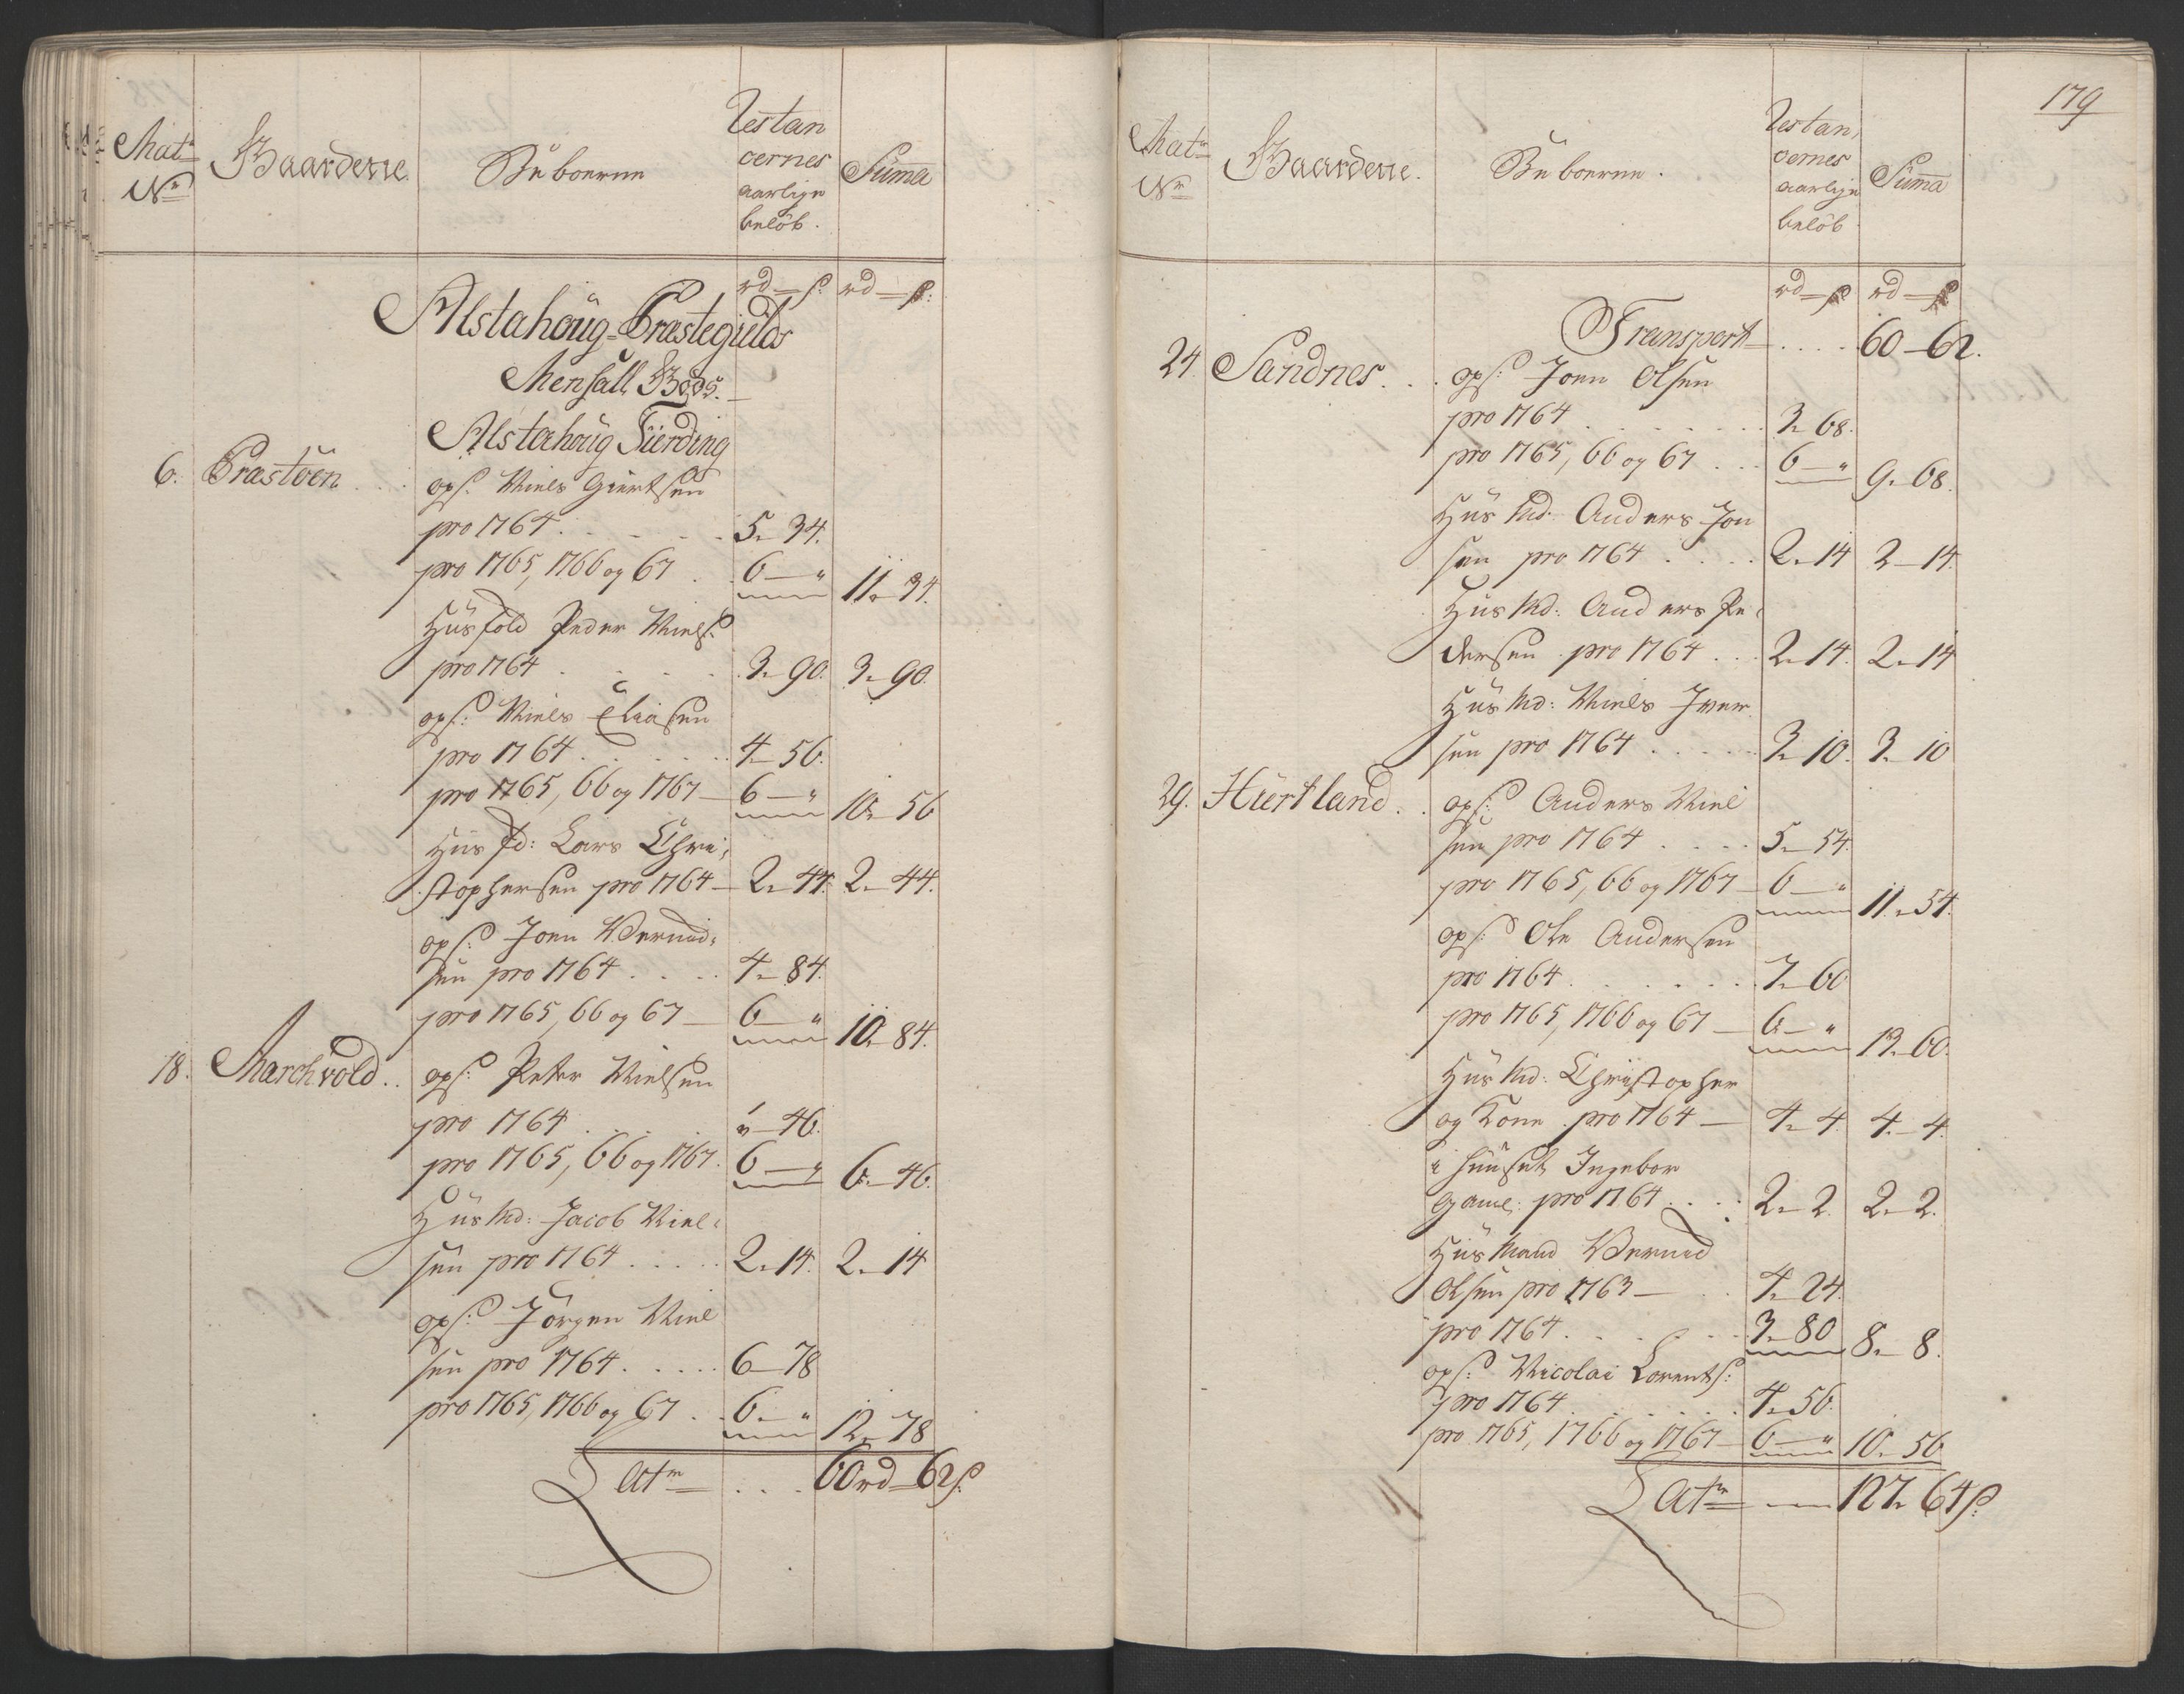 Mat:
No
Gaardene.
Beboerne
Restan
cernes
aarlige
beløb.
Summa
rd — s: rd — s:
Alstahoug Præstegields
Mensall Gods.
Alstahoug Fierding
6. Præstøen ops: Niels Giertsen
pro 1764 . . . . . 5 - 34.
pro 1765, 1766 og 67 . . 6 — " 11 - 34.
Husfold Peder Niels:
pro 1764 . . . . 3 - 90. 3 - 90.
ops: Niels Eliasen
pro 1764 . . . . . . 4 - 56.
pro 1765, 66 og 1767 — 6 — " 10 - 56
Husfd: Lars Chri-
stophersen pro 1764 — 2 - 44. 2 - 44.
ops: Joen Bernd-
sen pro 1764 . . . . 4 - 84.
pro 1765, 66 og 67 — 6 — " 10 - 84.
18. Marchvold . . ops: Peter Nielsen
pro 1764 . . . . . " - 46.
pro 1765, 66 og 1767. 6 — " 6 - 46.
Huusmd: Jacob Niel-
sen pro 1764 . . . . . 2 - 14. 2 - 14
ops: Jørgen Niel
sen pro 1764 . . . . . 6 - 78
pro 1765, 1766 og 67 . . 6 - " 12 - 78
Latr . . . 60 rd - 62 s:
179
Mat:
No
Gaardene.
Beboerne.
Restan,
cernes
aarlige
beløb
Summa
rd — s rd — s
Transport . . . . 60 - 62.
24 Sandnes . . . ops: Joen Olsen
pro 1764 . . . . . . . 3 - 68.
pro 1765, 66 og 67 . . . 6 - " 9 - 68.
Huusmd. Anders Jon
sen pro 1764 . . . . 2 - 14 2 - 14.
Huusmd: Anders Pe-
dersen pro 1764 . . . 2 - 14. 2 - 14
Huusmd: Niels Iver
sen pro 1764 . . . . . 3 - 10. 3 - 10
29. Hiertland . . ops: Anders Niel
sen pro 1764 . . . . 5 - 54.
pro 1765, 66 og 1767 — 6 — " 11 - 54.
ops: Ole Andersen
pro 1764 . . . . . . . 7 - 60
pro 1765, 1766 og 67 — 6 - " 13 - 60.
Huusmd: Christopher
og Kone pro 1764 — 4 - 4. 4 - 4.
i Huuset Ingebor
gamel: pro 1764 . . . . 2 - 2. 2 - 2.
Huusmand Bernd
Olsen pro 1763 — . . 4 - 24.
pro 1764 . . . . . . . 3 - 80 8 - 8.
ops: Nicolai Lorents:
pro 1764 . . . . . . . 4 - 56.
pro 1765, 1766 og 1767 — 6 — " 10 - 56
Latr — 127 - 64 s: